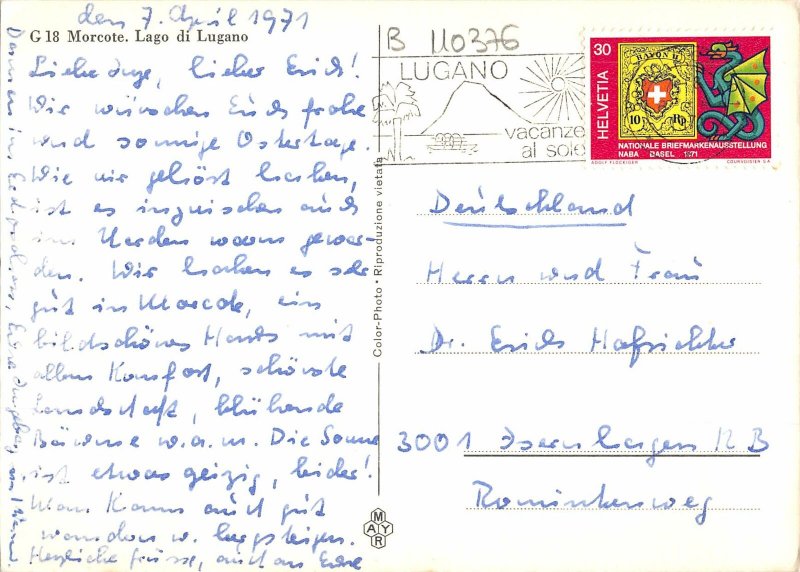 den 7. April 1971
G 18 Morcote. Lago di Lugano
Liebe Inge, lieber Erich!
Wir wünschen Euch frohe
und sonnige Ostertage.
Wie wir gehört haben,
ist es inzwischen auch
im Norden warm gewor-
den. Wir haben es sehr
gut in Morcote, ein
bildschönes Haus mit
allem Komfort, schönste
Landschaft, blühende
Bäume u.a.m. Die Sonne
ist etwas geizig, leider!
Man kann auch gut
wandern u. bergsteigen.
Herzliche Grüsse, auch an Eure
Color-Photo • Riproduzione vietata
MAYR
B 110376
LUGANO
vacanze
al sole
30
HELVETIA
RAYON
10 Rp
NATIONALE BRIEFMARKENAUSSTELLUNG
NABA BASEL 1971
ADOLF FLÜCKIGER
COURVOISIER S.A.
Deutschland
Herrn und Frau
Dr. Erich Hofrichter
3001 Isernhagen NB
Rominteweg